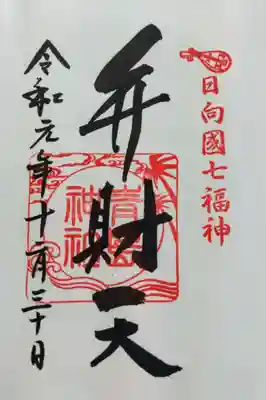 日向國七福神
弁財天
青島
神社
令和元年十二月三十日